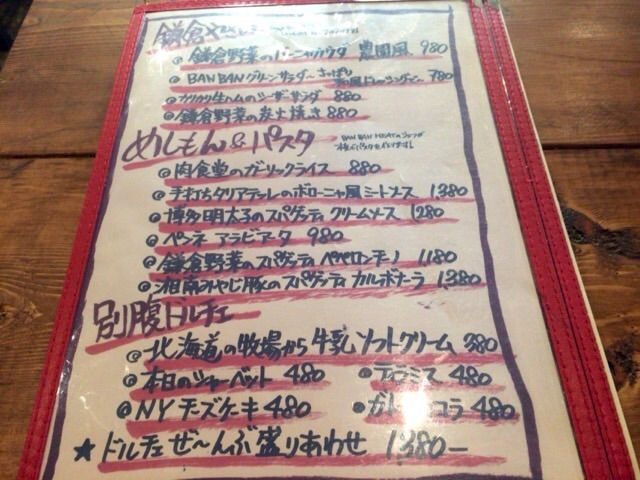 鎌倉
鎌倉野菜のバーニャカウダ 農園風 980
BAN BAN グリーンサラダ〜さっぱり和風ドレッシング〜 780
カリカリ生ハムのシーザーサラダ 880
鎌倉野菜の炭火焼き 880
めしもん&パスタ
BAN BAN MEATのシェフが
肉食堂のガーリックライス 880
手打ちタリアテッレのボローニャ風ミートソース 1,380
博多明太子のスパゲッティ クリームソース 1280
ペンネ アラビアータ 980
鎌倉野菜のスパゲッティ ペペロンチーノ 1180
湘南みやじ豚のスパゲッティ カルボナーラ 1,380
別腹ドルチェ
北海道の牧場から 牛乳ソフトクリーム 380
本日のシャーベット 480 ティラミス 480
NYチーズケーキ 480 ガトーショコラ 480
★ドルチェ ぜ〜んぶ盛りあわせ 1,380-